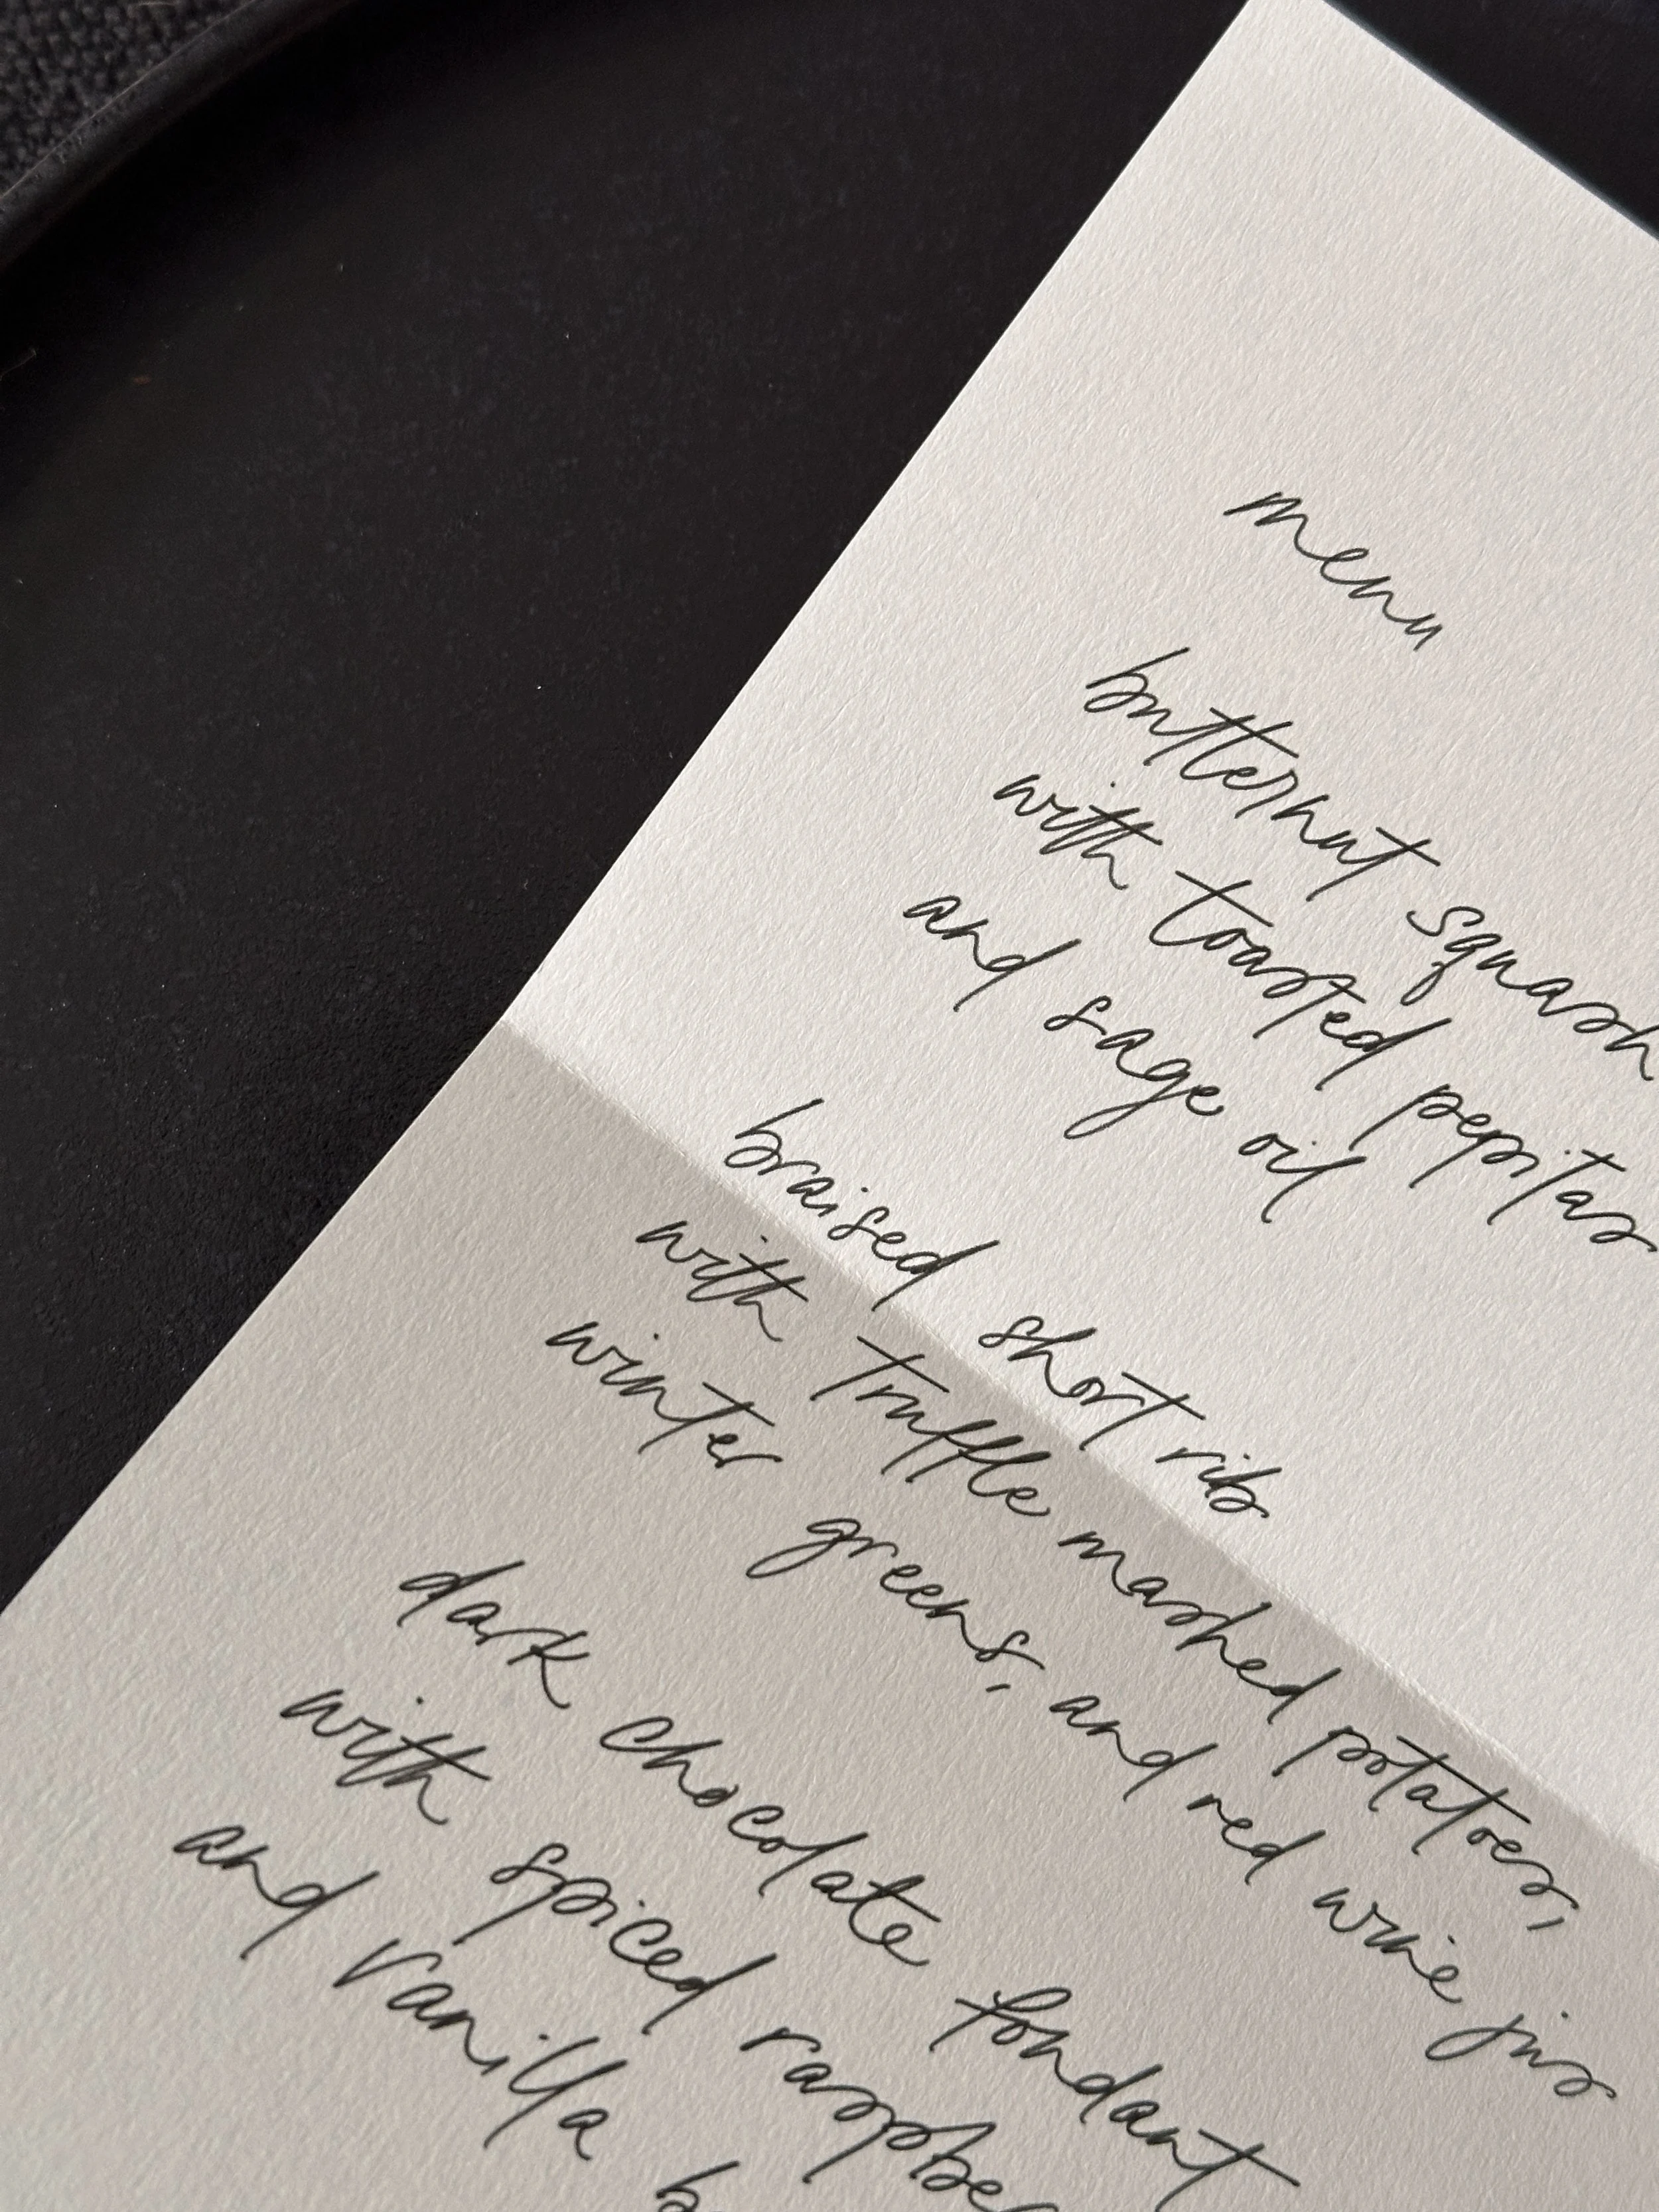 menu
butternut squash
with toasted pepitas
and sage oil
braised short rib
with truffle mashed potatoes,
winter greens, and red wine jus
dark chocolate fondant
with spiced
and vanilla